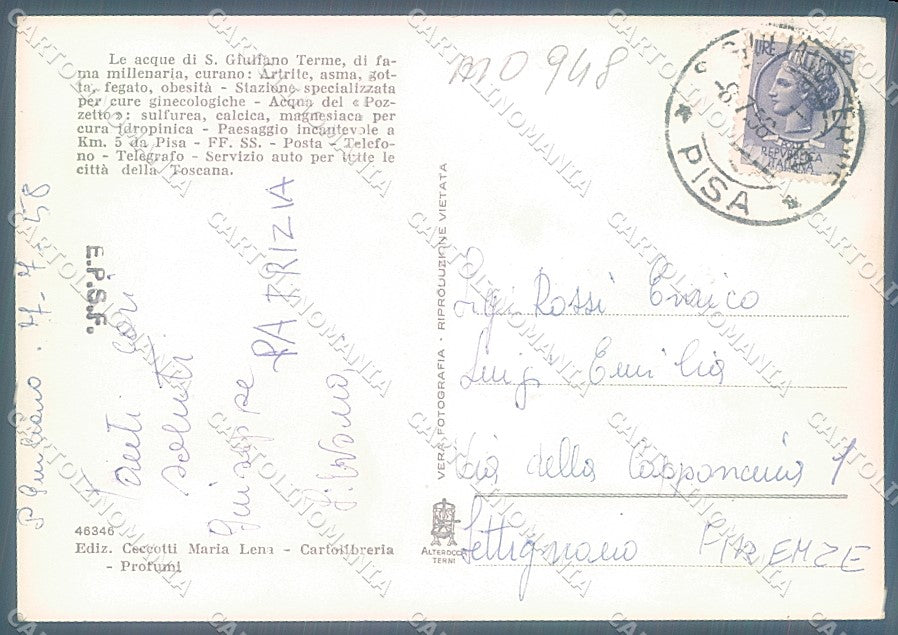 Le acque di S. Giuliano Terme, di fa-
ma millenaria, curano: Artrite, asma, got-
ta, fegato, obesità - Stazione specializzata
per cure ginecologiche - Acqua del «Poz-
zetto»: sulfurea, calcica, magnesiaca per
cura idropinica - Paesaggio incantevole a
Km. 5 da Pisa - FF. SS. - Posta - Telefo-
no - Telegrafo - Servizio auto per tutte le
città della Toscana.
MO 948
LIRE 15
REPUBBLICA
ITALIANA
PISA
E.P.S.F.
S Giuliano. 7-7-58
Tanti cari
saluti
Giuseppe PATRIZIA
Silvana
VERA FOTOGRAFIA - RIPRODUZIONE VIETATA
Sigi Rossi Enrico
Luigi Emilia
Via della Capponcina
Settignano FIRENZE
46346
Ediz. Ceccotti Maria Lena - Cartolibreria
- Profumi
ALTEROCCA
TERNI
CARTOLINOMANIA